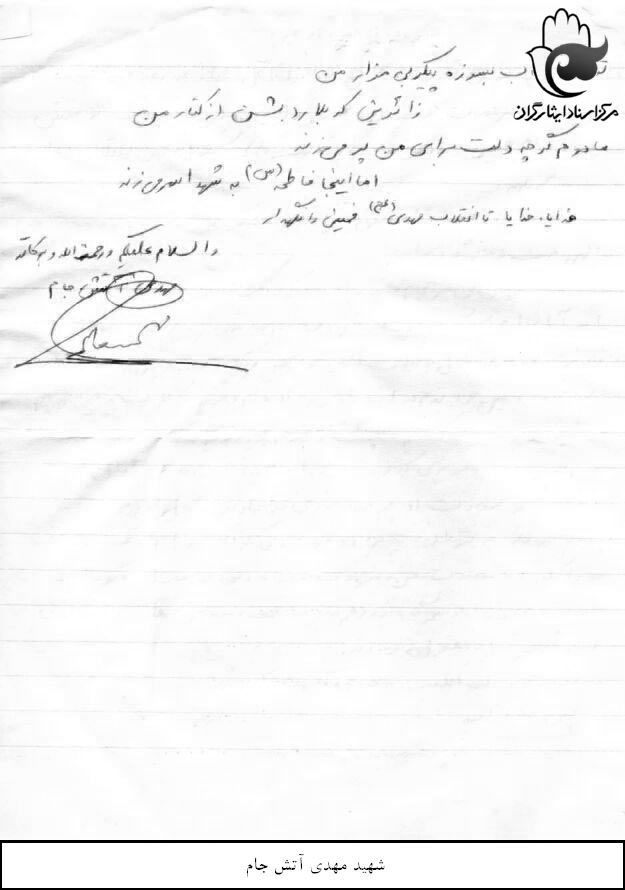 مرکز اسناد ایثارگران
بسوزه پیکر بی مزار من
زائرین کربلا رد بشن از کنار من
مادرم گرچه دلت برای من پر می زند
اما اینجا فاطمه (س) به شهدا سر می زند
خدایا، خدایا تا انقلاب مهدی (عج) خمینی را نگهدار
والسلام علیکم ورحمة الله وبرکاته
مهدی آتش جام
شهید مهدی آتش جام